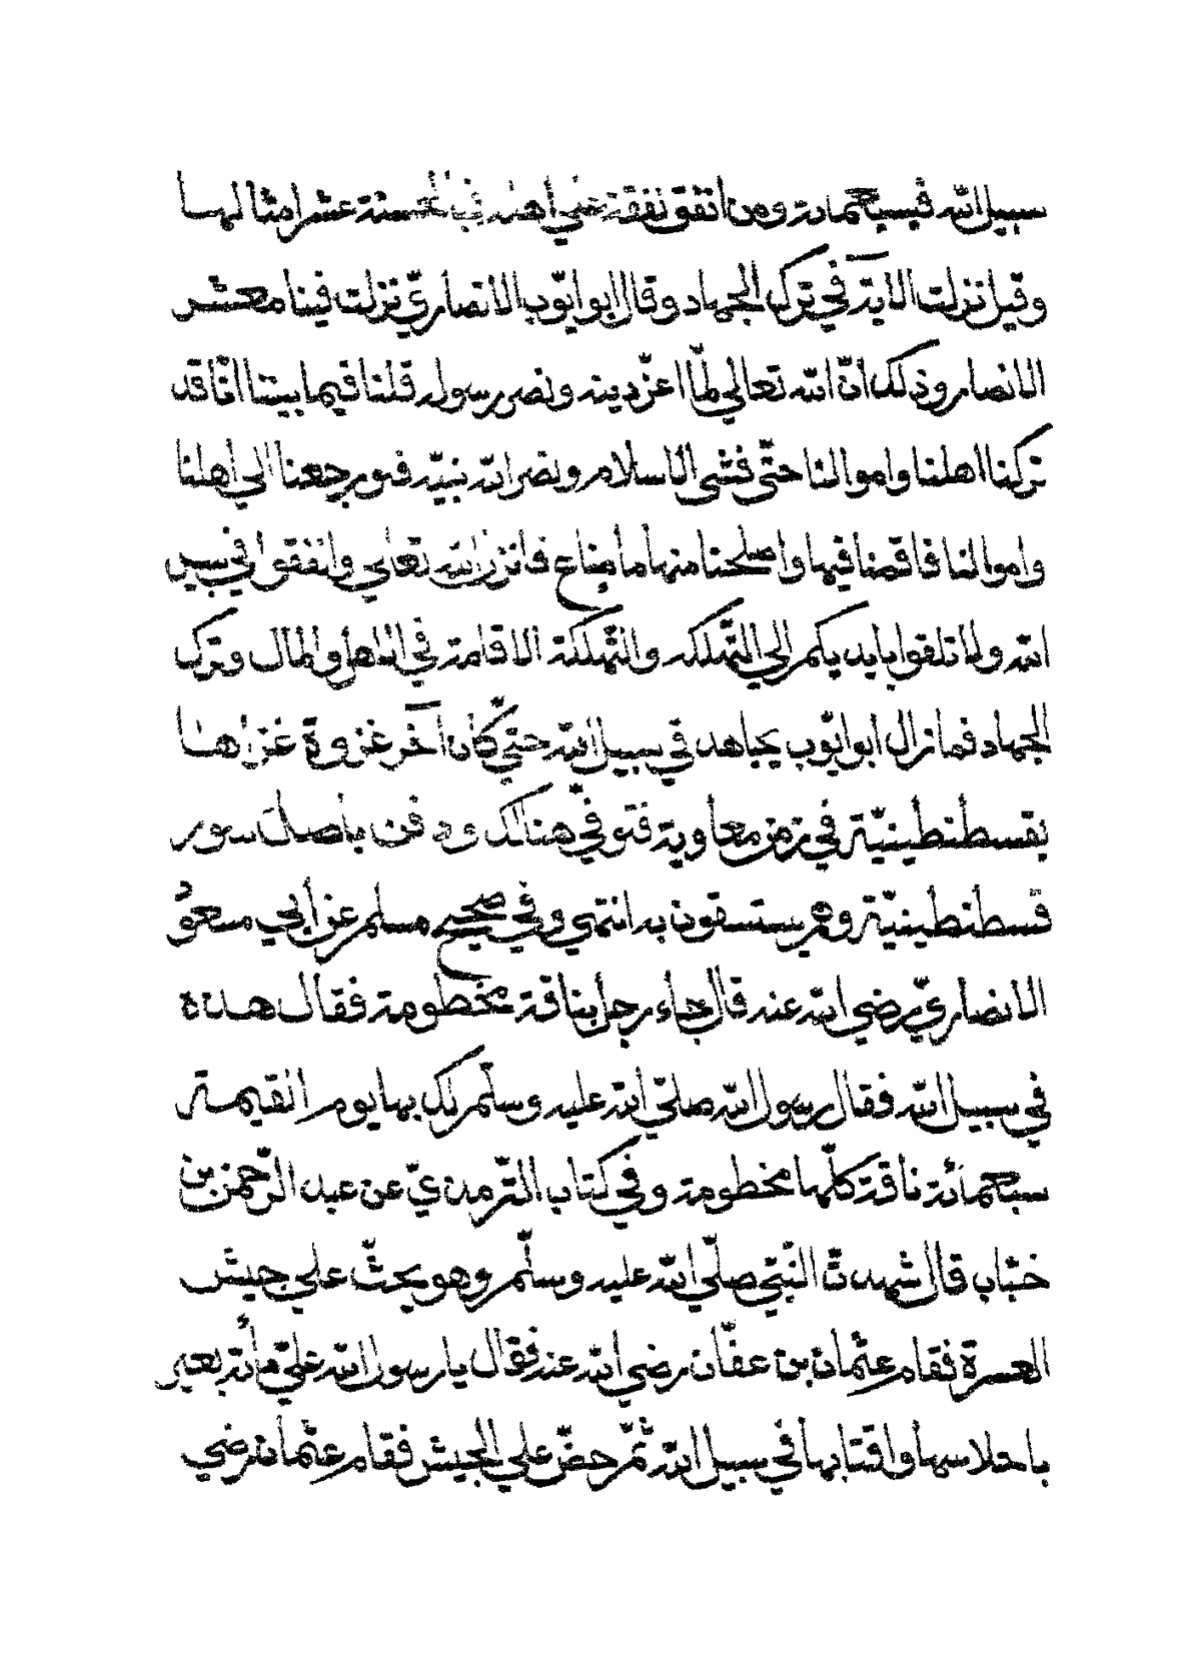 سبيل الله فبسبعمائة ومن انفق نفقة علي أهله فالحسنة عشر امثالها
وقيل نزلت الآية في ترك الجهاد وقال ابو ايّوب الانصاريّ نزلت فينا معشر
الانصار وذلك انّ الله تعالي لمّا اعزّ دينه ونصر رسوله قلنا فيما بيننا انّا قد
تركنا اهلنا واموالنا حتّي فشي الاسلام ونصر الله نبيّه فلو رجعنا الي اهلنا
واموالنا فاقمنا فيها واصلحنا منها ما ضاع فانزل الله تعالي وانفقوا في سبيل
الله ولا تلقوا بايديكم الي التّهلكه والتّهلكة الاقامة في الاهل والمال وترك
الجهاد فما زال ابو ايّوب يجاهد في سبيل الله حتّي كان آخر غزوة غزاها
بقسطنطينيّة في زمن معاوية فتوفّي هنالك ودفن بأصل سور
قسطنطينيّة وهم يستسقون به انتهي وفي صحيح مسلم عن أبي مسعود
الانصاريّ رضي الله عنه قال جاء رجل بناقة مخطومة فقال هذه
في سبيل الله فقال رسول الله صلّي الله عليه وسلّم لك بها يوم القيمة
سبعمائة ناقة كلّها مخطومة وفي كتاب التّرمذيّ عن عبد الرّحمن بن
خبّاب قال شهدتّ النّبيّ صلّي الله عليه وسلّم وهو يحثّ علي جيش
العسرة فقام عثمان بن عفّان رضي الله عنه فقال يا رسول الله عليّ مأئة بعير
باحلاسها واقتابها في سبيل الله ثمّ حضّ علي الجيش فقام عثمان رضي